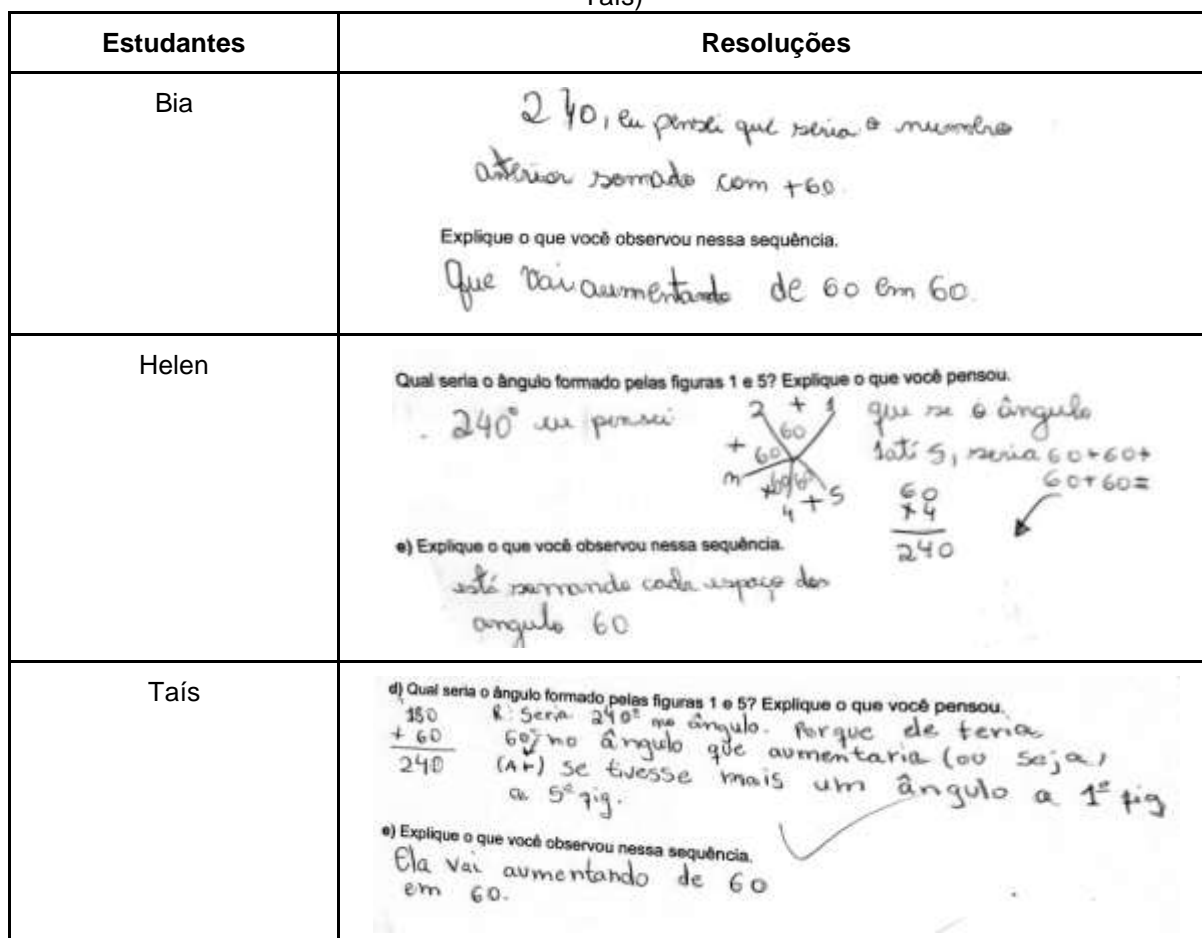 Taís)
Estudantes Resoluções
Bia
240, eu pensei que seria o numero
anterior somado com +60.
Explique o que você observou nessa sequência.
Que vai aumentando de 60 em 60.
Helen
Qual seria o ângulo formado pelas figuras 1 e 5? Explique o que você pensou.
240° eu pensei
2 + 1
60
+ 60
60 60
4 + 5
que se o ângulo
1 até 5, seria 60+60+
60+60=
60
×4
240
e) Explique o que você observou nessa sequência.
está somando cada espaço dos
angulo 60
Taís
d) Qual seria o ângulo formado pelas figuras 1 e 5? Explique o que você pensou.
180
+ 60
240
R: Seria 240° no ângulo. Porque ele teria
60° no ângulo que aumentaria (ou seja,
se tivesse mais um ângulo a 1ª fig
a 5ª fig.
e) Explique o que você observou nessa sequência.
Ela vai aumentando de 60
em 60.